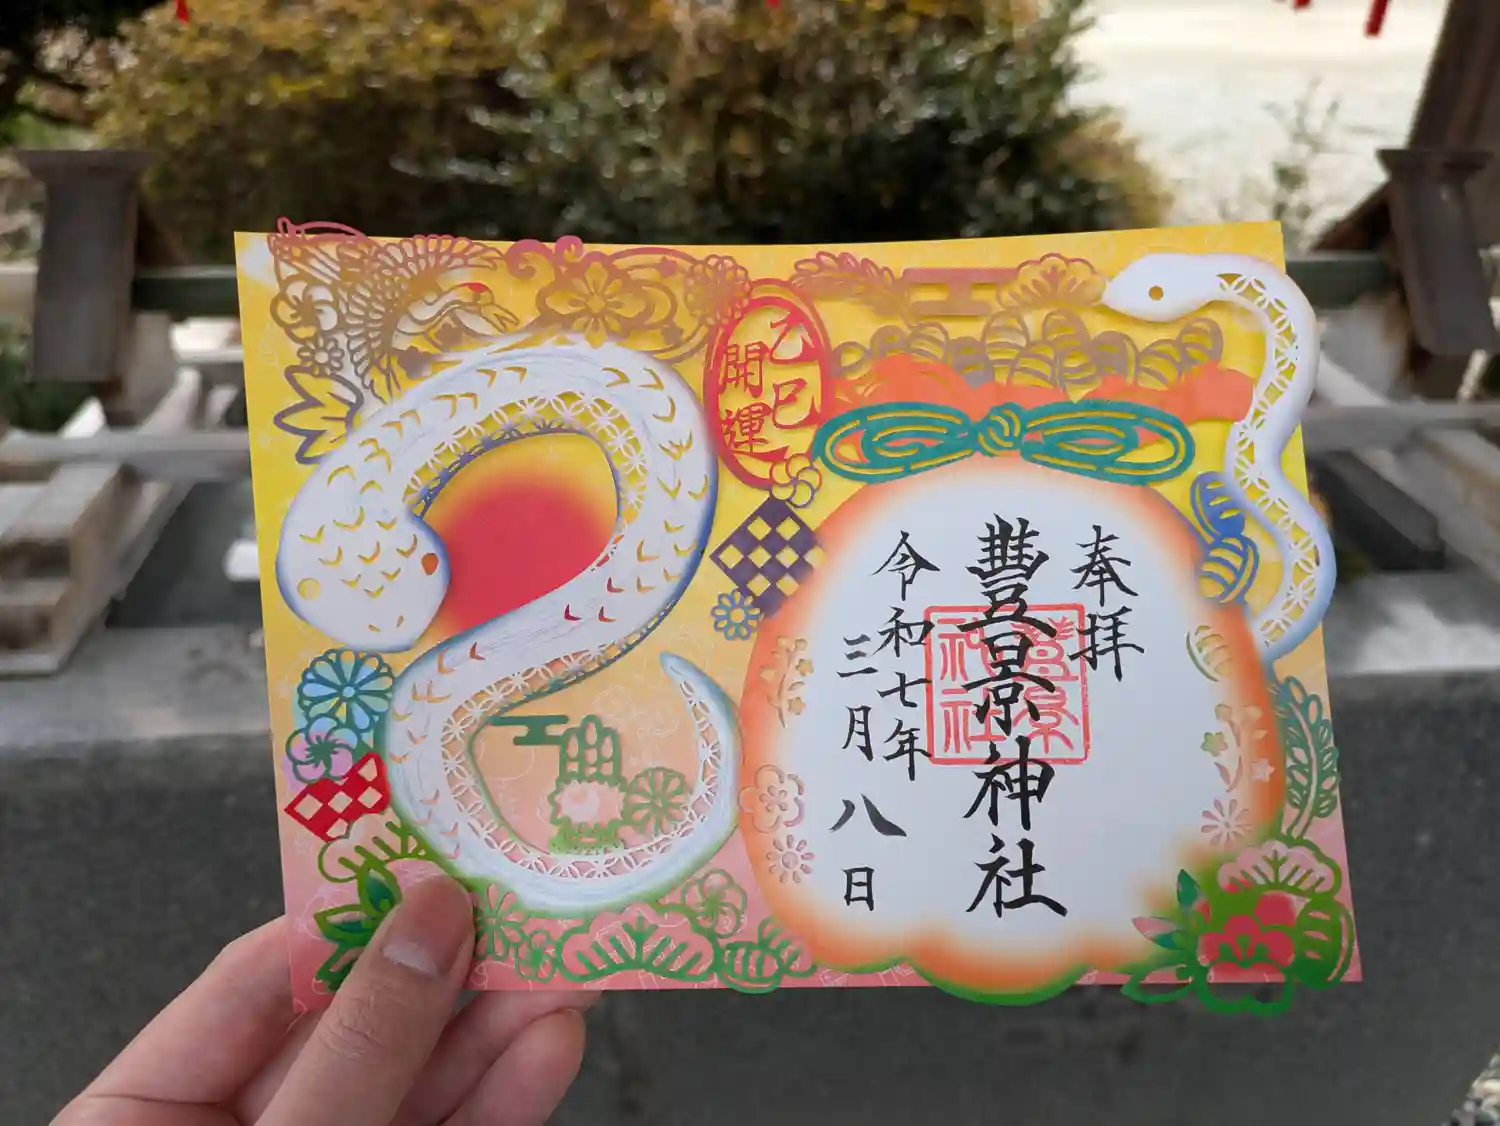 乙巳
開輝
奉拝
豐景神社
豊景
神社
令和七年
三月八日